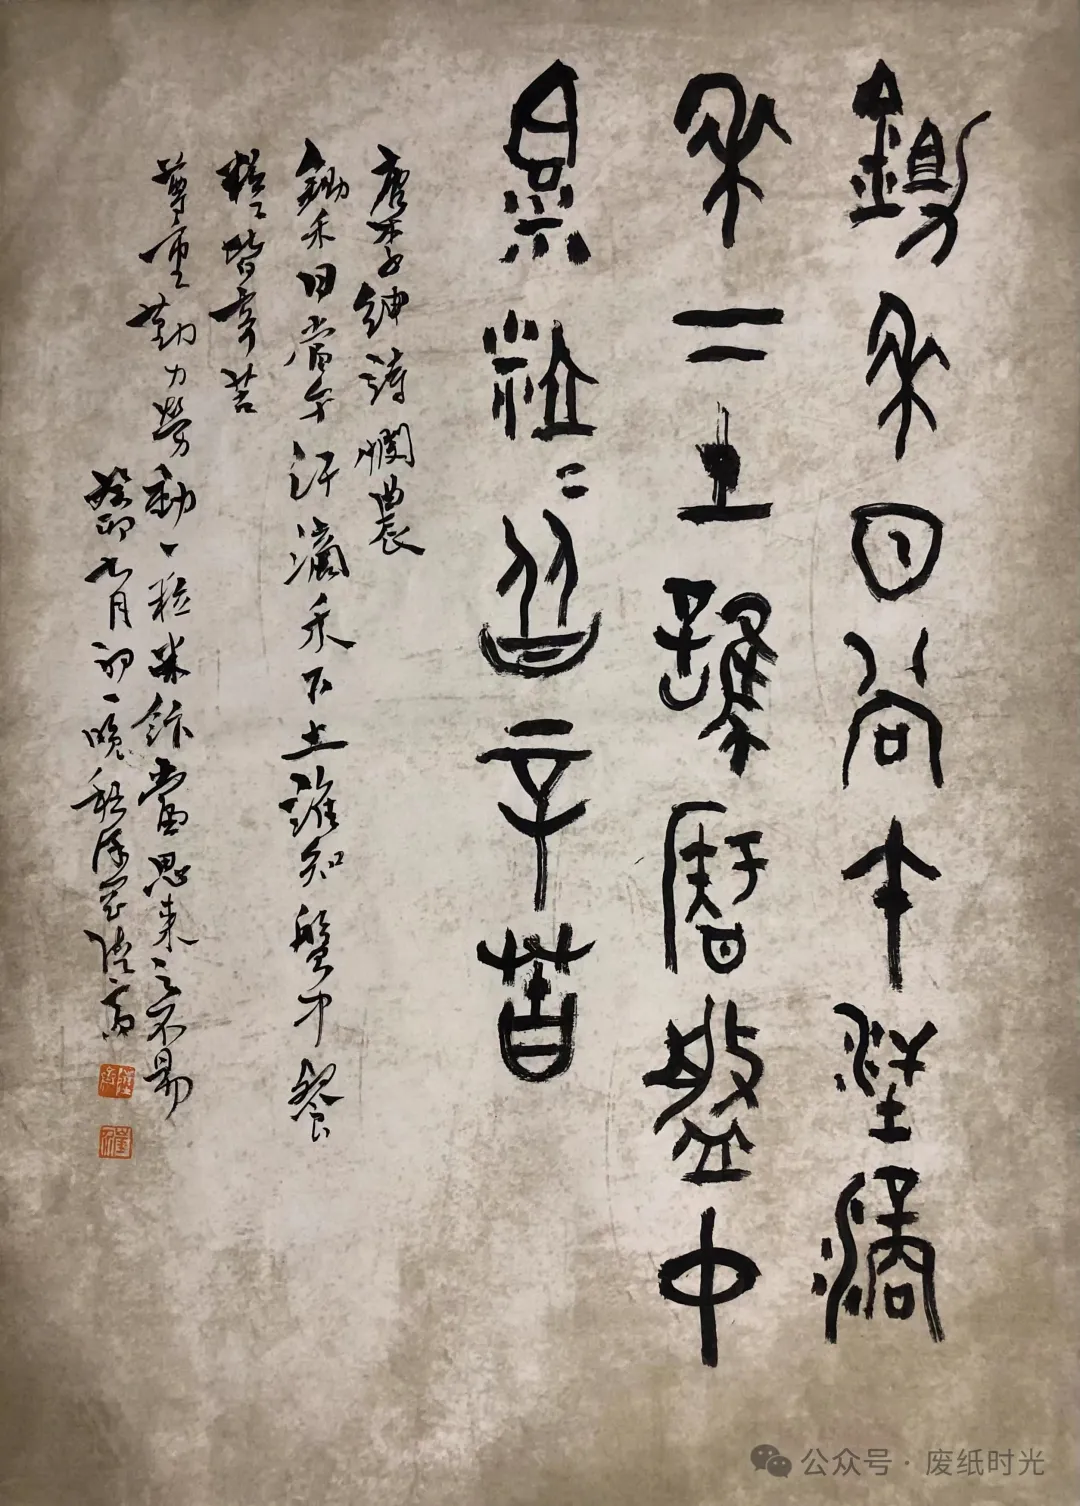 鋤禾日當午汗滴
禾下土誰知盤中
餐粒〻皆辛苦
唐李紳詩憫農
鋤禾日當午汗滴禾下土誰知盤中餐
粒〻皆辛苦
尊重勤力勞動一粒米飯當思來之不易
癸卯九月初一晚
公众号·废纸时光